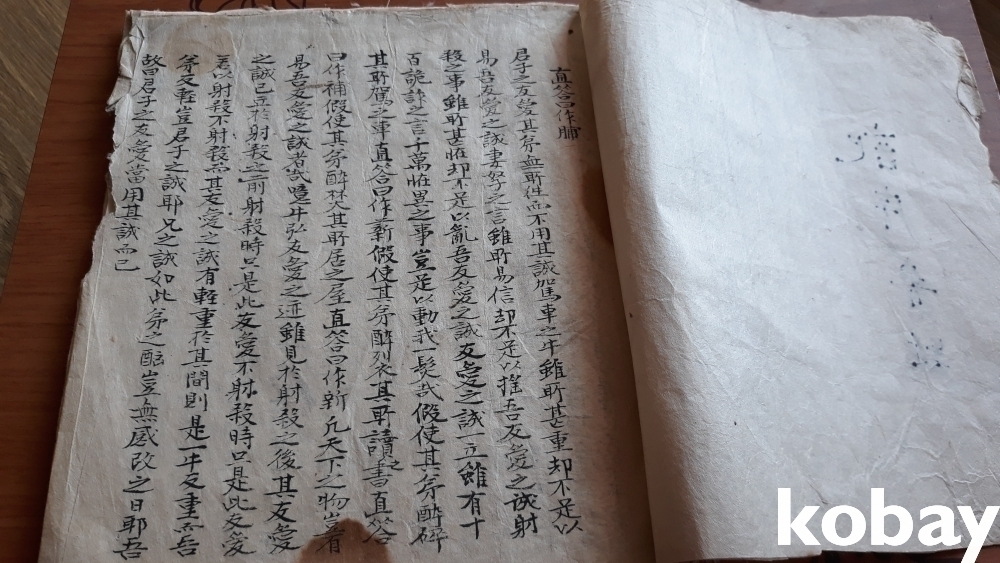 直答曰作脯
君子之友愛其弟無所往而不用其誠駕車之牛雖所甚重却不足以
易吾友愛之誠妻孥之言雖所易信却不足以搖吾友愛之誠射
殺之事雖所甚恠却不足以亂吾友愛之誠友愛之誠一立雖有十
百詭詐之言千萬恠異之事豈足以動我一髮哉假使其弟醉碎
其所駕之車直答曰作薪假使其弟醉裂衣其所讀之書直答
曰作補假使其弟醉焚其所居之屋直答曰作新凡天下之物豈有
易吾友愛之誠者哉噫牛弘友愛之迹雖見於射殺之後其友愛
之誠已立於射殺之前射殺時只是此友愛不射殺時只是此友愛
若以射殺不射殺而其友愛之誠有輕重於其間則是一牛反重而吾
弟反輕豈君子之誠耶兄之誠如此弟之酗豈無感改之日耶吾
故曰君子之友愛當用其誠而已
kobay